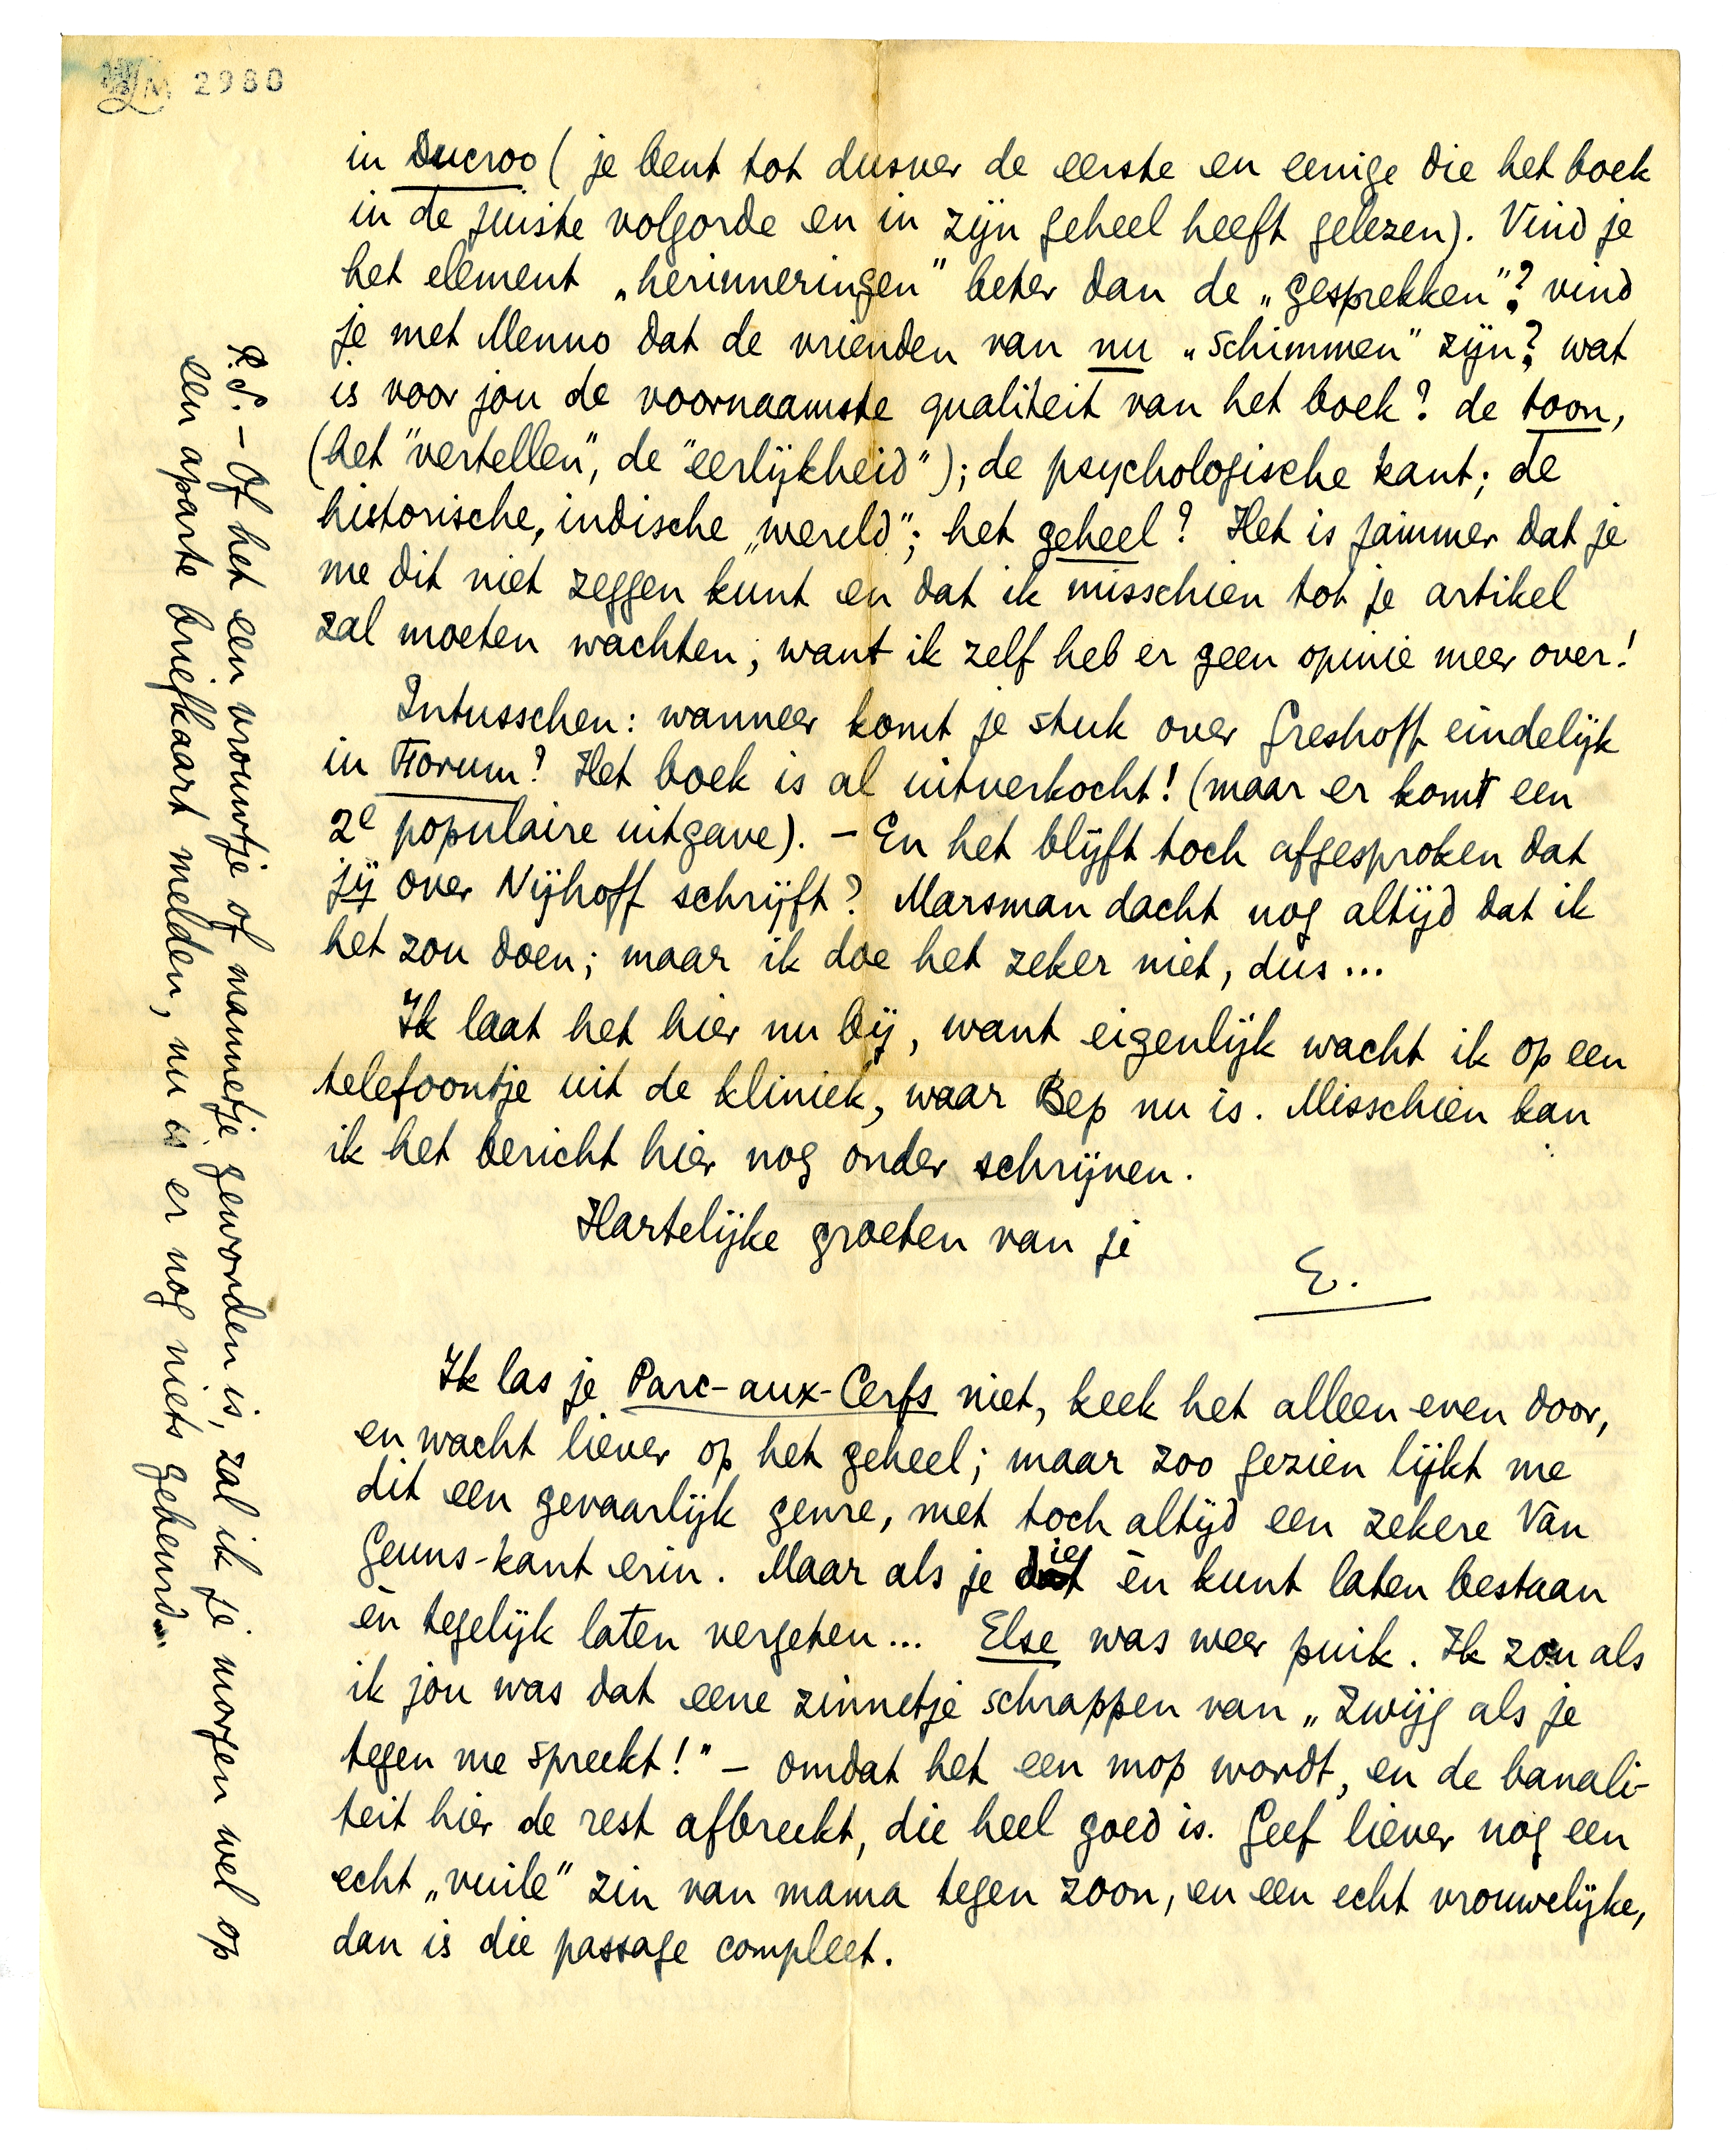 LM 2980
in Ducroo (je bent tot dusver de eerste en eenige die het boek
in de juiste volgorde en in zijn geheel heeft gelezen). Vind je
het element „herinneringen” beter dan de „gesprekken”? vind
je met Menno dat de vrienden van nu „schimmen” zijn? wat
is voor jou de voornaamste qualiteit van het boek? de toon,
(het "vertellen", de "eerlijkheid"); de psychologische kant; de
historische, indische „wereld”; het geheel? Het is jammer dat je
me dit niet zeggen kunt en dat ik misschien tot je artikel
zal moeten wachten; want ik zelf heb er geen opinie meer over!
Intusschen: wanneer komt je stuk over Greshoff eindelijk
in Forum? Het boek is al uitverkocht! (maar er komt een
2e populaire uitgave). – En het blijft toch afgesproken dat
jij over Nijhoff schrijft? Marsman dacht nog altijd dat ik
het zou doen; maar ik doe het zeker niet, dus...
Ik laat het hier nu bij, want eigenlijk wacht ik op een
telefoontje uit de kliniek, waar Bep nu is. Misschien kan
ik het bericht hier nog onder schrijven.
Hartelijke groeten van je
E.
Ik las je Parc-aux-Cerfs niet, keek het alleen even door,
en wacht liever op het geheel; maar zoo gezien lijkt me
dit een gevaarlijk genre, met toch altijd een zekere Van
Geuns-kant erin. Maar als je die èn kunt laten bestaan
èn tegelijk laten vergeten... Else was weer puik. Ik zou als
ik jou was dat eene zinnetje schrappen van „Zwijg als je
tegen me spreekt!” – omdat het een mop wordt, en de banali-
teit hier de rest afbreekt, die heel goed is. Geef liever nog een
echt „vuile” zin van mama tegen zoon, en een echt vrouwelijke,
dan is die passage compleet.
P.S. – Of het een vrouwtje of mannetje geworden is, zal ik je morgen wel op
een aparte briefkaart melden, nu is er nog niets gebeurd.